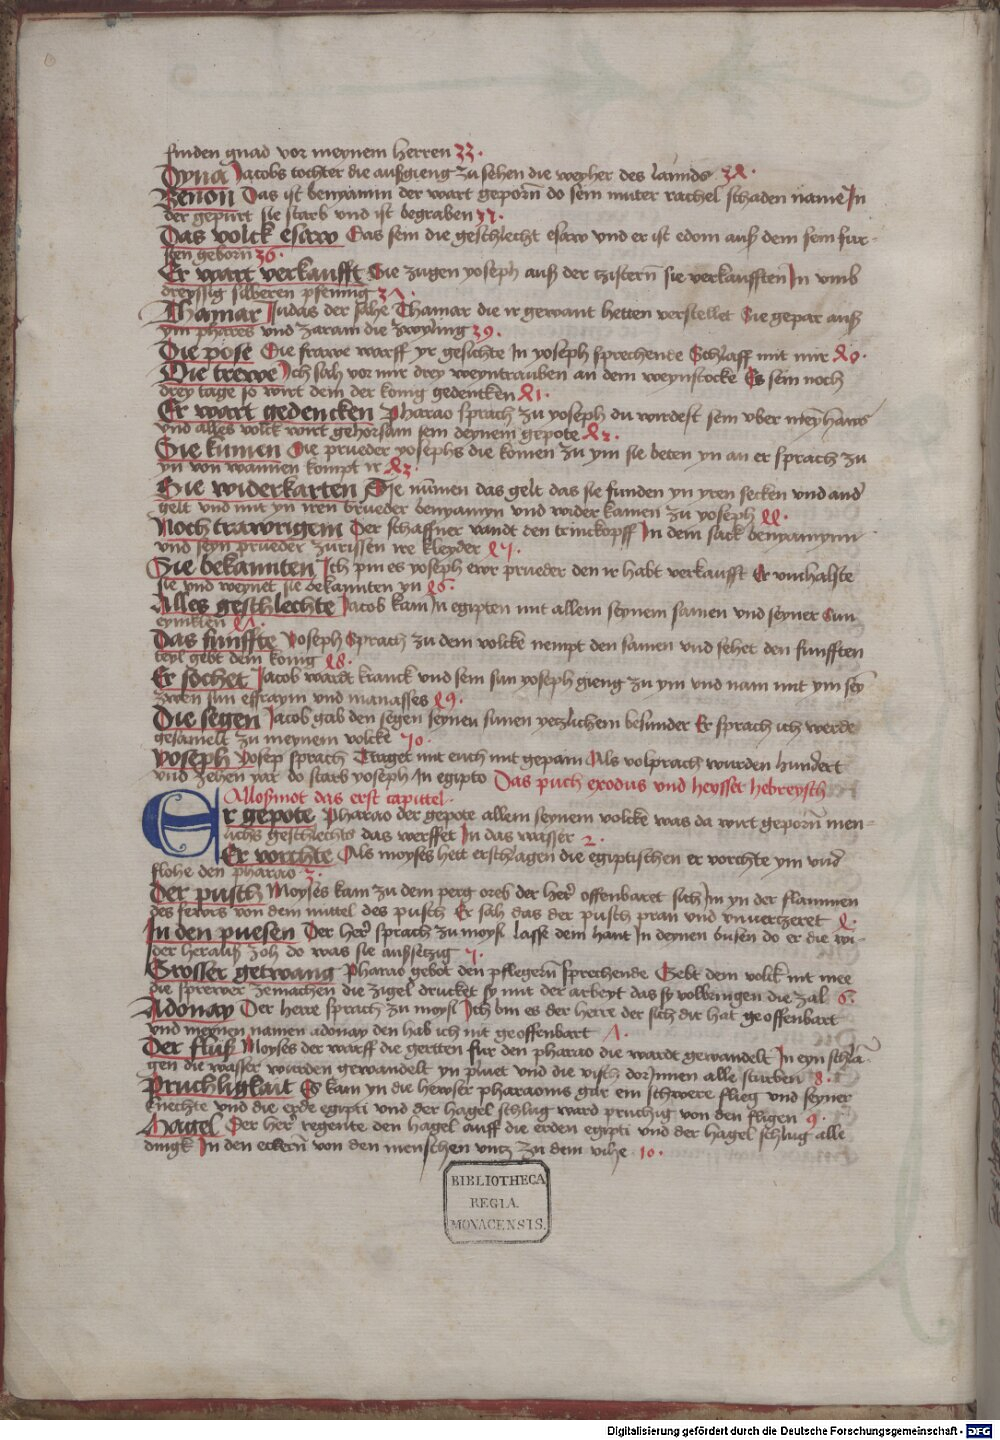 finden gnad vor meynem herren 33.
Dyna Jacobs tochter die außgieng zu sehen die weyher des lannds 34.
Benon Das ist benyamin der wart geporn̄ do sein muter rachel schaden name In
der gepurt sie starb und ist begraben 35.
Das volck esaw Das sein die geschlecht esaw und er ist edom auß dem sein fur-
sten geborn 36.
Er wart verkaufft Sie zugen yoseph auß der zistern̄ sie verkaufften In vmb
dreyssig silberen pfennig 37.
Thamar Judas der sahe Thamar die ir gewant hetten verstellet Sie gepar auß
ym phares und zaram die zwyling 39.
Die pose Die frawe warff yr gesichte In yoseph sprechende Schlaff mit mir 40.
Die trewe Ich sah vor mir drey weyntrauben an dem weynstocke Es sein noch
drey tage so wirt dein der konig gedencken 41.
Er wart gedencken Pharao sprach zu yoseph du wirdest sein vber meȳ haws
und alles volck wirt gehorsam sein deynem gepote 42.
Sie kumen Die prueder yosephs die komen zu ym sie beten yn an er sprach zu
yn von wannen kompt ir 43
Sie widerkarten Sie nūmen das gelt das sie funden yn yren secken und and̾
gelt und mit yn iren brueder benyamyn und wider kamen zu yoseph 44.
Noch trawrigem Der schaffner vandt den trinckopff In dem sack benyamynn
und seyn prueder zurissen ire kleyder 45.
Sie bekannten Ich pin es yoseph ewr prueder den ir habt verkaufft Er vmhalste
sie und weynet sie bekannten yn 46.
Alles geschlechte Jacob kam In egipten mit allem seynem samen und seyner Sun
eyniklen 47.
Das funffte Yoseph Sprach zu dem volcke nempt den samen und sehet den funfften
teyl gebt dem konig 48.
Er sochet Jacob wardt kranck und sein sun yoseph gieng zu ym und nam mit ym sey̅
zwen sun effraym und manasses 49.
Die segen Jacob gab den segen seynen sunen yetzlichem besunder Er sprach ich werde
gesamelt zu meynem volcke 50.
Yoseph Yosep sprach Traget mit euch mit gepain Als volprach wurden hundert
und zehen yar do starb yoseph In egipto Das puch exodus und heysser hebreysch
Aloßmot das erst capittel.
Er gepote Pharao der gepote allem seynem volcke was da wirt geporn̄ men-
lichs geschlechts das werffet In das wasser 2.
Er vorchte Als moyses hett erschlagen die egiptischen er vorchte ym und̾
flohe den pharao 3.
Der pusch Moyses kam zu dem perg oreb der her̾ offenbaret sich Im yn der flammen
des fewrs von dem mittel des pusch Er sah das der pusch pran und vnuertzeret 4.
In den puesen Der her̾ sprach zu moysi lasse dein hant In deynen busen do er die wi-
der herauß zoh do was sie aussetzig 5.
Grosser getwang Pharao gebot den pflegern̄ sprechende Gebt dem volck nit mee
die sprewer zemachen die zigel drucket sy mit der arbeyt das sy volbringen die zal 6.
Adonay Der herre sprach zu moysi Ich bin es der herre der sich dir hat geoffenbart
vnd meynen namen adonay den hab ich nit geoffenbart 7.
Der fluß Moyses der warff die gertten fur den pharao die wardt gewandelt In eyn schla-
gen die wasser wurden gewandelt yn pluet und die visch dorInnen alle sturben 8.
Pruchligkait Es kam yn die hewser pharaonis gar ein schwere flieg und seyner
knechte und die erde egipti und der hagel schlug ward pruchig von den fligen 9.
Hagel Der her̾ regente den hagel auff die erden egipti und der hagel schlug alle
dingk In den eckern̄ von den menschen untz zu dem vihe 10.
BIBLIOTHECA
REGIA
MONACENSIS.
Digitalisierung gefördert durch die Deutsche Forschungsgemeinschaft - DFG